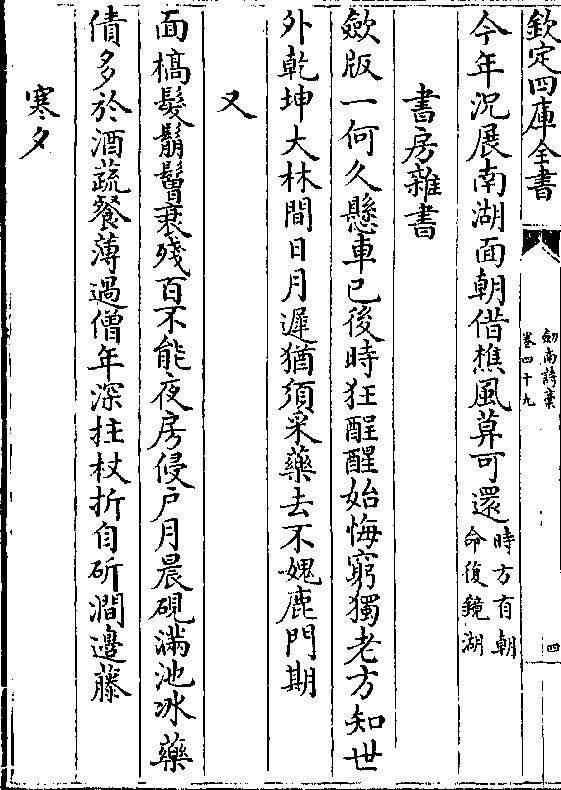 欽定四庫全書
劒南詩稾
卷四十九
四
今年況展南湖面朝借樵風莫可還時方有朝
命復鏡湖
書房雜書
斂版一何久懸車已後時狂酲醒始悔窮獨老方知世
外乾坤大林間日月遲猶須采藥去不媿鹿門期
又
面槁髮鬅鬙衰殘百不能夜房侵戶月晨硯滿池冰藥
債多於酒蔬餐薄過僧年深拄杖折自斫澗邊藤
寒夕